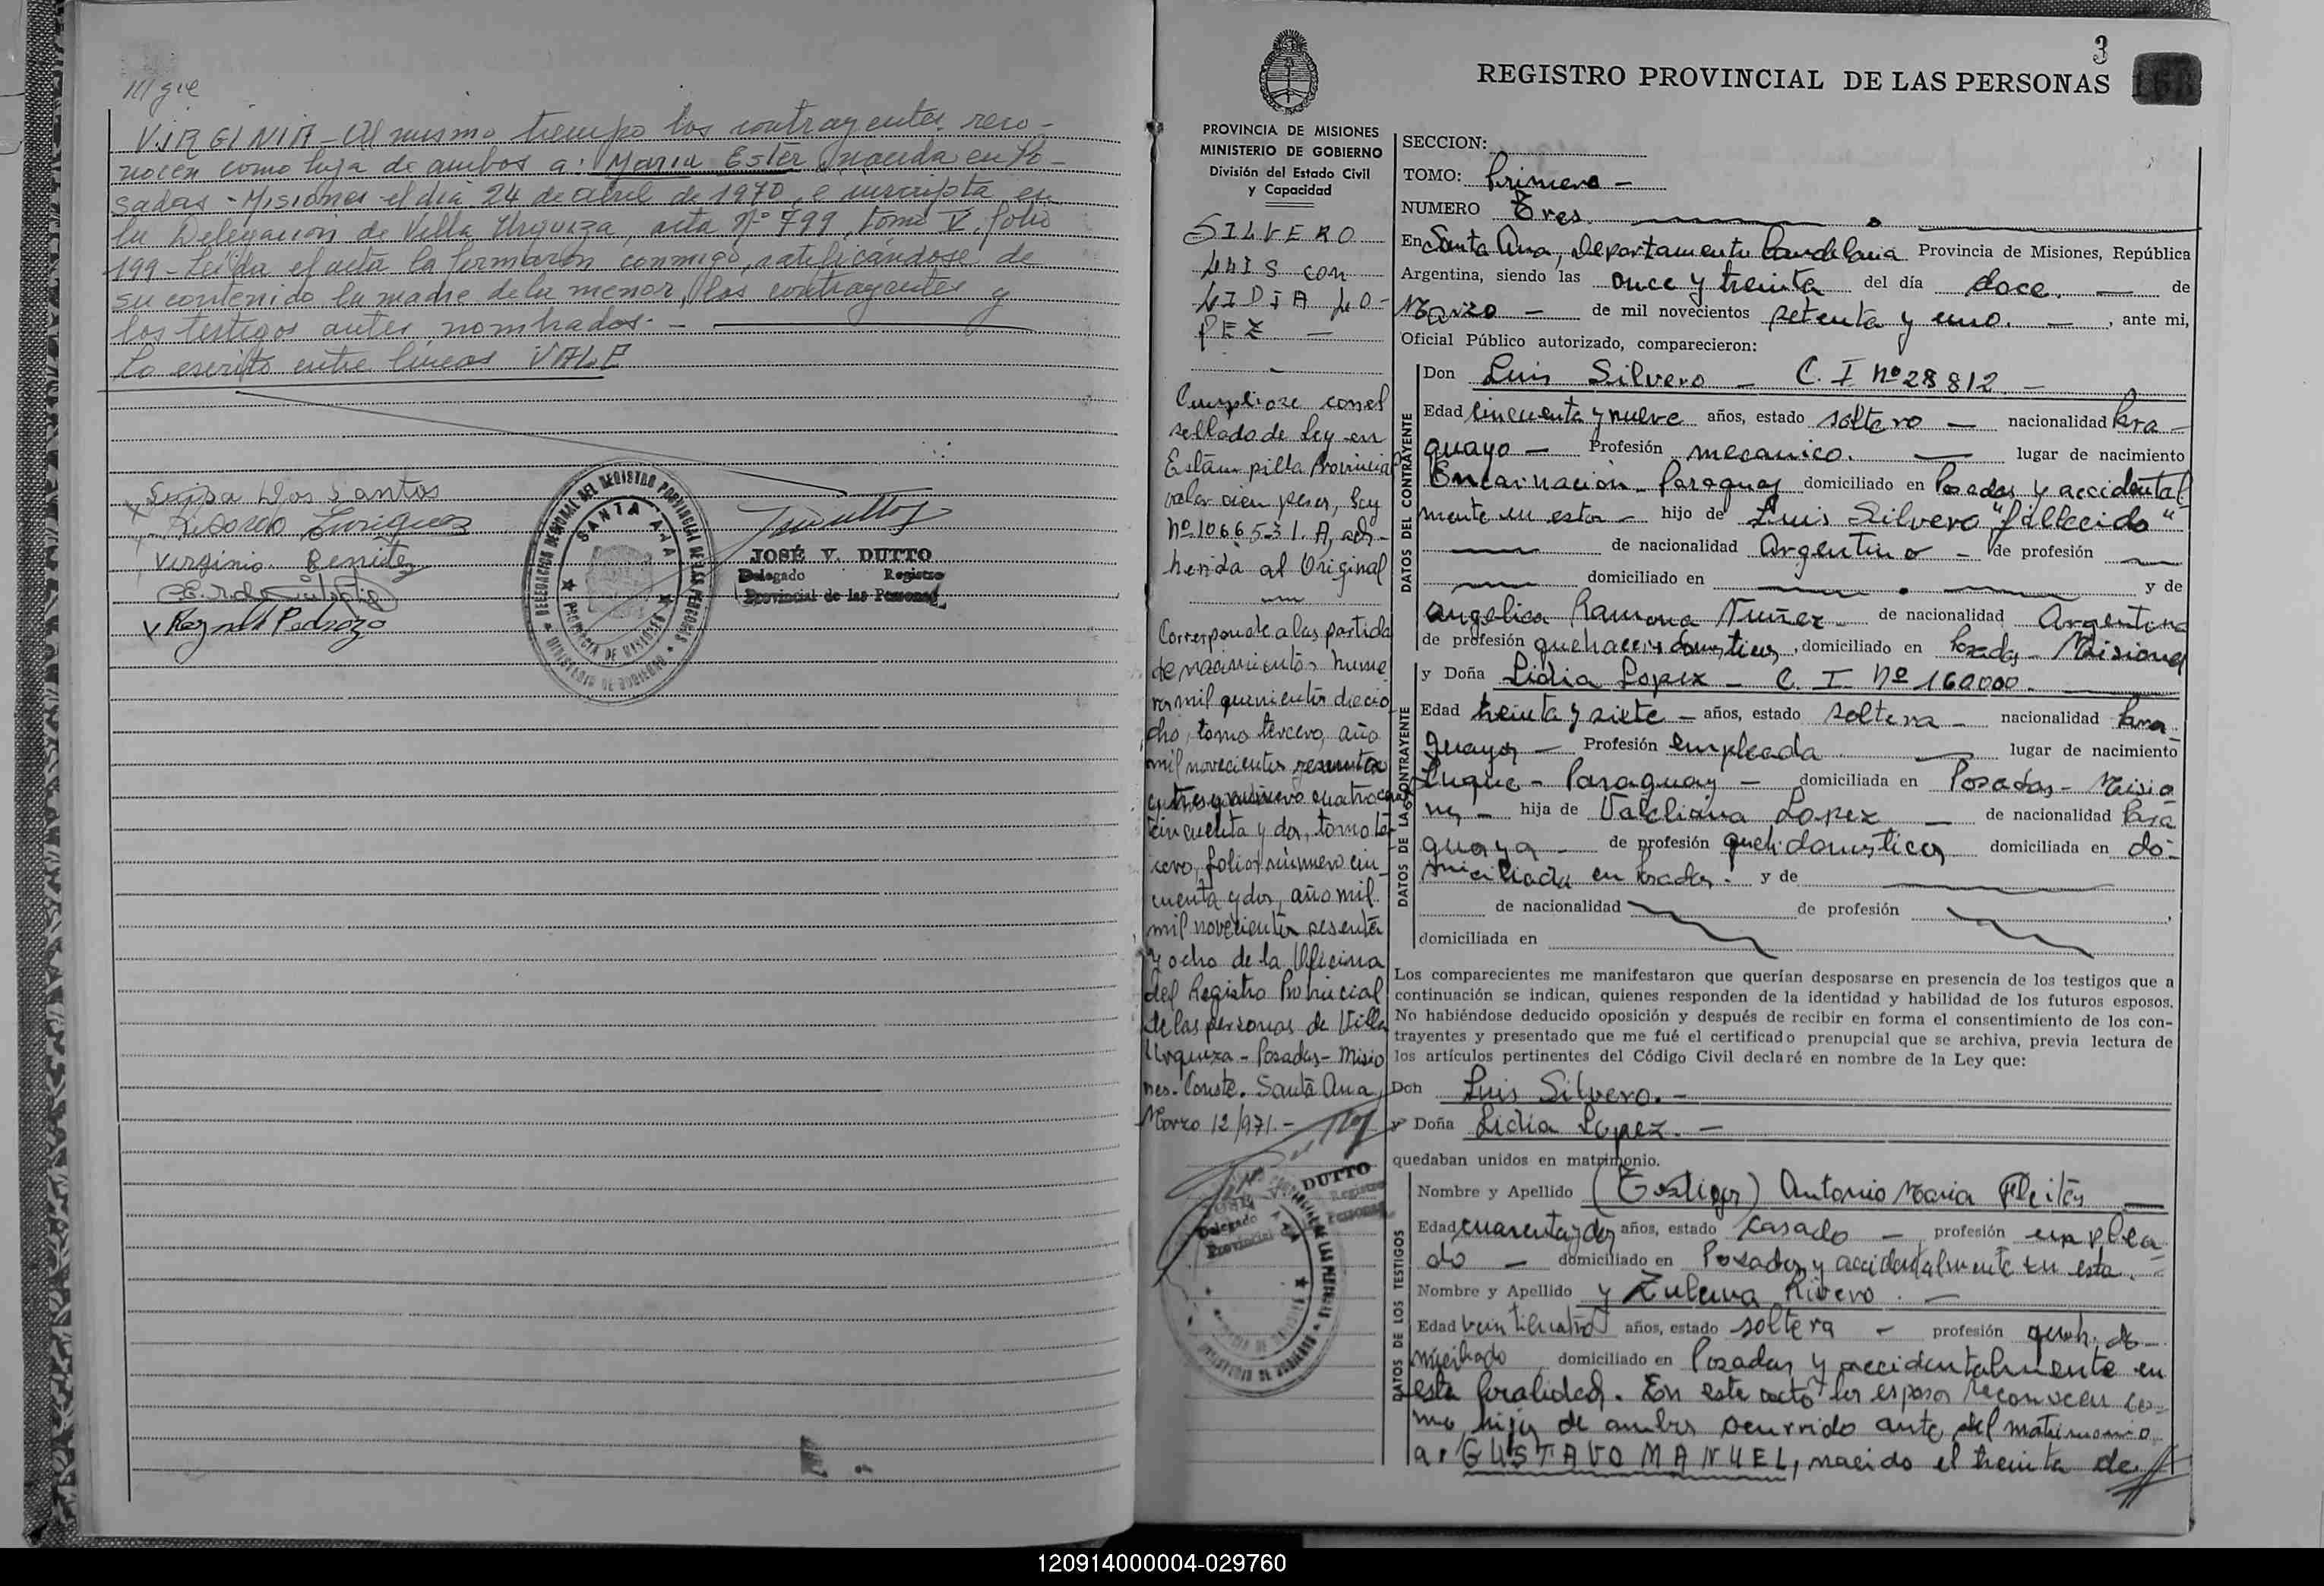 VIRGINIA - Al mismo tiempo los contrayentes reco-
nocen como hija de ambos a: Maria Ester nacida en Po-
sadas - Misiones el dia 24 de abril de 1970 e inscripta en
la Delegacion de Villa Urquiza, acta Nº 799, tomo V, folio
199 - Leida el acta la firmaron conmigo, ratificándose de
su contenido la madre de la menor, los contrayentes y
los testigos antes nombrados. -
Lo escrito entre lineas VALE
Luisa Dos Santos
Virginio Benitez
DELEGACION REGIONAL DEL REGISTRO PROVINCIAL DE LAS PERSONAS
SANTA ANA
PROVINCIA DE MISIONES
MINISTERIO DE GOBIERNO
JOSÉ V. DUTTO
Delegado Registro
Provincial de las Personas
3
REGISTRO PROVINCIAL DE LAS PERSONAS
168
PROVINCIA DE MISIONES
MINISTERIO DE GOBIERNO
División del Estado Civil
y Capacidad
SILVERO
LUIS con
LIDIA LO-
PEZ -
Cumpliose con el
sellado de Ley en
Estampilla Provincial
valor cien pesos, Ley
Nº 1066531. A, ad-
herida al Original
Corresponde a las partida
de nacimientos nume
ros mil quinientos diecio
cho, tomo tercero, año
mil novecientos sesenta
cincuenta y dos, tomo ter
cero, folios número cin
cuenta y dos, año mil
mil novecientos sesenta
y ocho de la Oficina
del Registro Provincial
de las personas de Villa
Urquiza - Posadas - Misio
nes. Conste. Santa Ana,
Marzo 12/971. -
DUTTO
Delegado Registro
Provincial Personas
SECCION:
TOMO: Primero -
NUMERO Tres
En Santa Ana, Departamento Candelaria Provincia de Misiones, República
Argentina, siendo las once y treinta del día doce. - de
Marzo - de mil novecientos setenta y uno. - , ante mi,
Oficial Público autorizado, comparecieron:
DATOS DEL CONTRAYENTE
Don Luis Silvero - C. I. Nº 28812 -
Edad cincuenta y nueve años, estado soltero - nacionalidad Para-
guayo - Profesión mecanico. - lugar de nacimiento
Encarnación - Paraguay domiciliado en Posadas y accidental-
mente en esta - hijo de Luis Silvero "fallecido"
de nacionalidad Argentino - de profesión
domiciliado en y de
Angelica Ramona Nuñez - de nacionalidad Argentina
de profesión quehaceres domesticos, domiciliado en Posadas - Misiones
DATOS DE LA CONTRAYENTE
y Doña Lidia Lopez - C. I. Nº 160000.
Edad treinta y siete - años, estado soltera - nacionalidad Para-
guaya - Profesión empleada lugar de nacimiento
Luque - Paraguay - domiciliada en Posadas - Misio
nes - hija de Valeliana Lopez - de nacionalidad Para
guaya - de profesión queh. domesticos domiciliada en do-
miciliada en Posadas - y de
de nacionalidad de profesión ,
domiciliada en
Los comparecientes me manifestaron que querían desposarse en presencia de los testigos que a
continuación se indican, quienes responden de la identidad y habilidad de los futuros esposos.
No habiéndose deducido oposición y después de recibir en forma el consentimiento de los con-
trayentes y presentado que me fué el certificado prenupcial que se archiva, previa lectura de
los artículos pertinentes del Código Civil declaré en nombre de la Ley que:
Don Luis Silvero. -
y Doña Lidia Lopez. -
quedaban unidos en matrimonio.
DATOS DE LOS TESTIGOS
Nombre y Apellido (Testigos) Antonio Maria Fleitas -
Edad cuarenta y dos años, estado casado - profesión emplea-
do - domiciliado en Posadas y accidentalmente en esta.
Nombre y Apellido y Zulema Rivero. -
Edad veinticuatro años, estado soltera - profesión queh. do-
miciliado domiciliado en Posadas y accidentalmente en
esta localidad. En este acto los esposos reconocen co-
mo hijos de ambos ocurrido antes del matrimonio
a: GUSTAVO MANUEL, nacido el treinta de
120914000004-029760